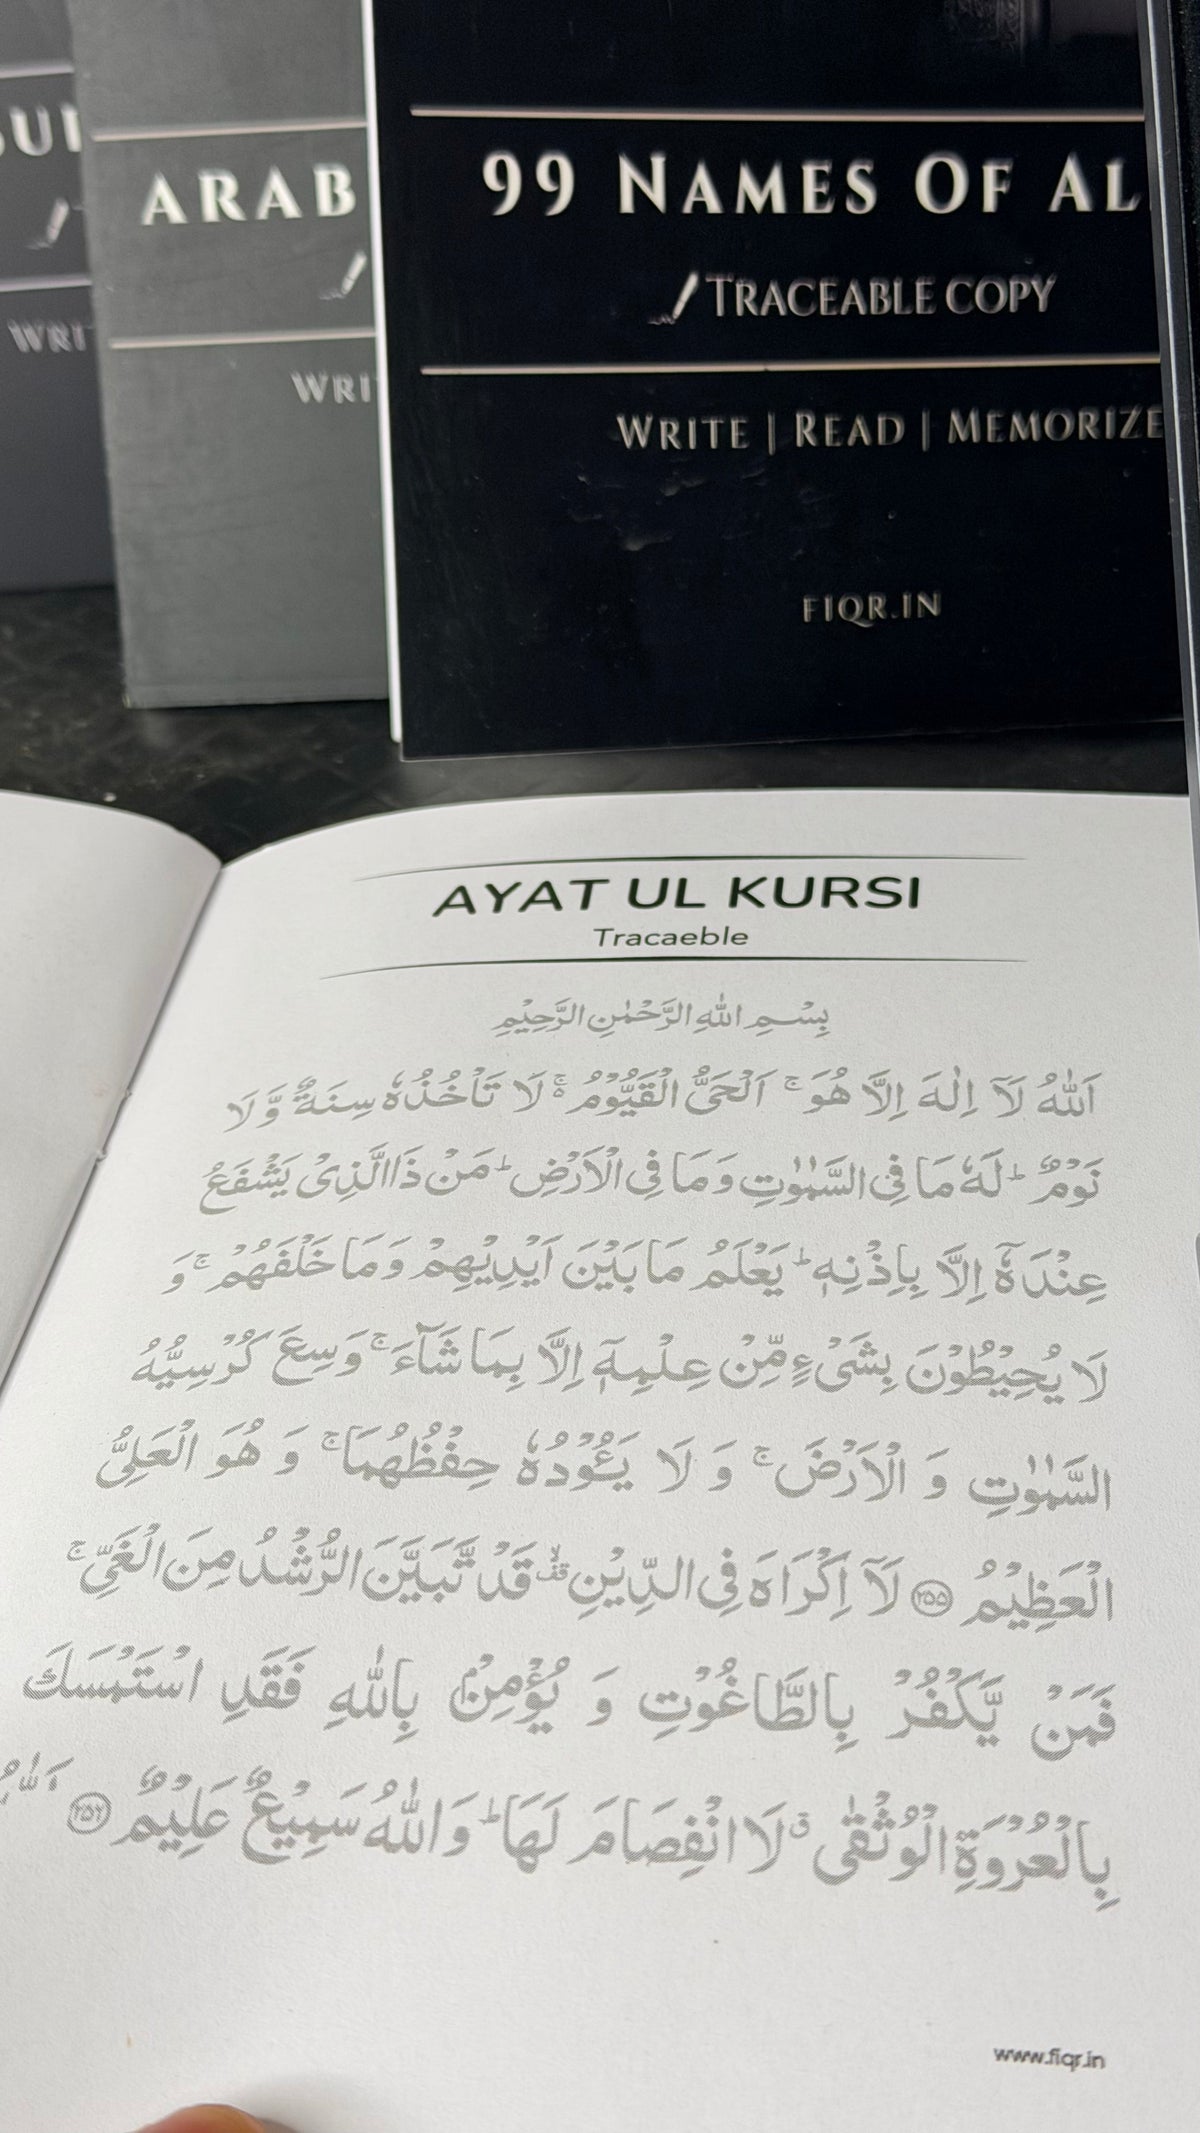 SUI
WRI
ARAB
WRI
99 NAMES OF AL
TRACEABLE COPY
WRITE | READ | MEMORIZE
FIQR.IN
AYAT UL KURSI
Tracaeble
بِسْمِ اللّٰهِ الرَّحْمٰنِ الرَّحِيْمِ
اَللّٰهُ لَاۤ اِلٰهَ اِلَّا هُوَ ۚ اَلْحَیُّ الْقَیُّوْمُ ۚ لَا تَاْخُذُهٗ سِنَةٌ وَّ لَا
نَوْمٌ ؕ لَهٗ مَا فِی السَّمٰوٰتِ وَ مَا فِی الْاَرْضِ ؕ مَنْ ذَا الَّذِیْ یَشْفَعُ
عِنْدَهٗۤ اِلَّا بِاِذْنِهٖ ؕ یَعْلَمُ مَا بَیْنَ اَیْدِیْهِمْ وَ مَا خَلْفَهُمْ ۚ وَ
لَا یُحِیْطُوْنَ بِشَیْءٍ مِّنْ عِلْمِهٖۤ اِلَّا بِمَا شَآءَ ۚ وَسِعَ كُرْسِیُّهُ
السَّمٰوٰتِ وَ الْاَرْضَ ۚ وَ لَا یَـُٔوْدُهٗ حِفْظُهُمَا ۚ وَ هُوَ الْعَلِیُّ
الْعَظِیْمُ ﴿۲۵۵﴾ لَاۤ اِكْرَاهَ فِی الدِّیْنِ ۙ۫ قَدْ تَّبَیَّنَ الرُّشْدُ مِنَ الْغَیِّ ۚ
فَمَنْ یَّكْفُرْ بِالطَّاغُوْتِ وَ یُؤْمِنْۢ بِاللّٰهِ فَقَدِ اسْتَمْسَكَ
بِالْعُرْوَةِ الْوُثْقٰی ۗ لَا انْفِصَامَ لَهَا ؕ وَ اللّٰهُ سَمِیْعٌ عَلِیْمٌ ﴿۲۵۶﴾ اَللّٰهُ
www.fiqr.in